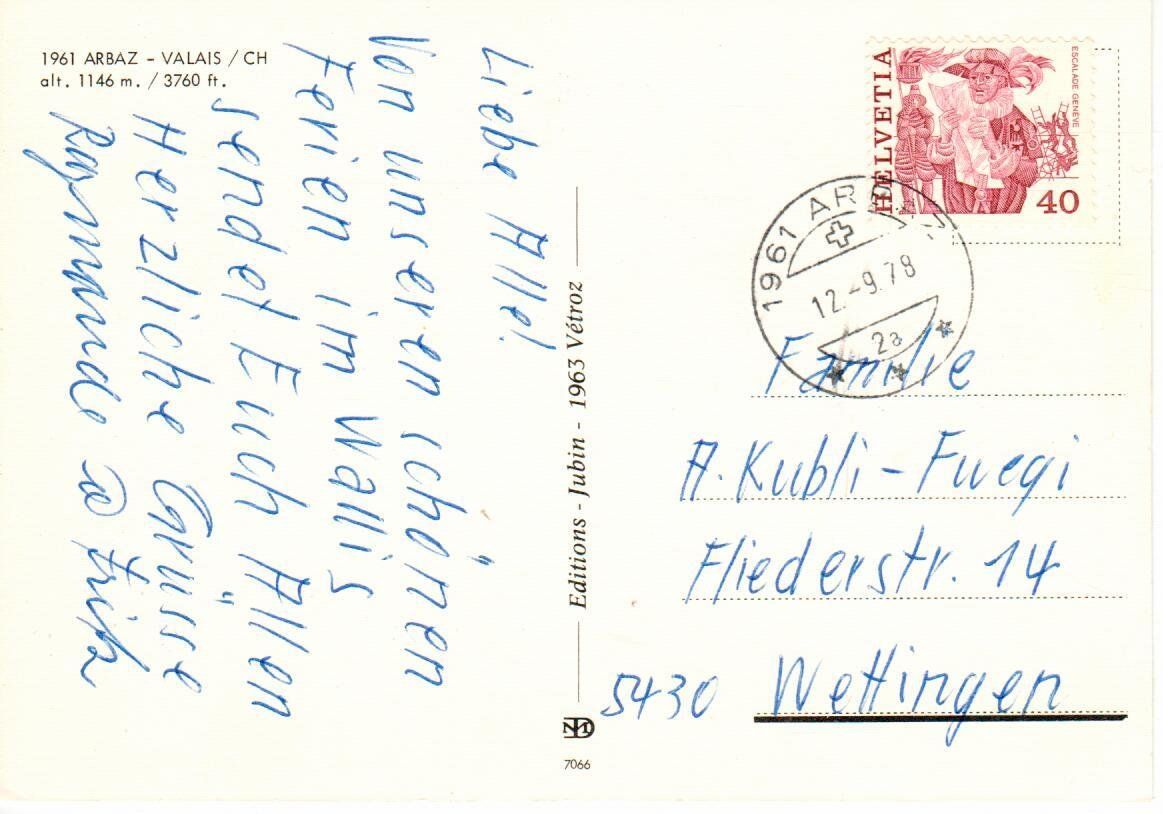 1961 ARBAZ - VALAIS / CH
alt. 1146 m. / 3760 ft.
Liebe Alle!
Von unseren schönen
Ferien im Wallis
sendet Euch Allen
Herzliche Grüsse
Raymonde
Editions - Jubin - 1963 Vétroz
7066
HELVETIA
ESCALADE GENÈVE
40
1961 ARBAZ
12.-9.78
2a
Familie
A. Kubli-Fuegi
Fliederstr. 14
5430 Wettingen